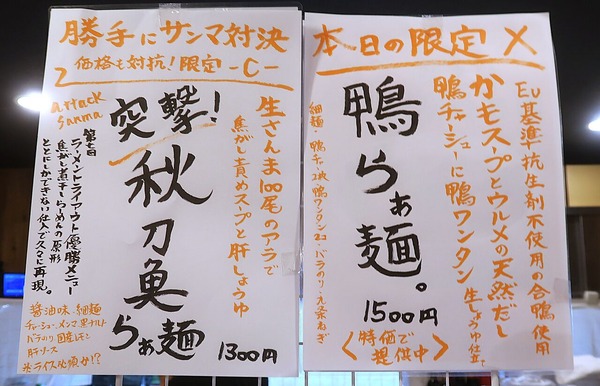 勝手にサンマ対決
価格も対抗!限定-C-
attack
Sanma
突撃!
秋刀魚
らぁ麺
1300円
生さんま100尾のアラで
焦がし責めスープと肝しょうゆ
第七回
ラーメントライアウト優勝メニュー
焦がし煮干しらーめんの原形
ととにしかできない仕入で久々に再現。
醤油味、細麺
チャーシュー、メンマ、黒ナルト
バラのり 国産レモン
肝ソース
※ライス必須か!?
本日の限定X
EU基準抗生剤不使用の合鴨使用
かもスープとウルメの天然だし
鴨チャーシューに鴨ワンタン 生しょうゆ仕立
鴨らぁ麺。
1500円
細麺・鴨チャー2枚 鴨ワンタン2コ・バラのり・九条ねぎ
<特価で
提供中>